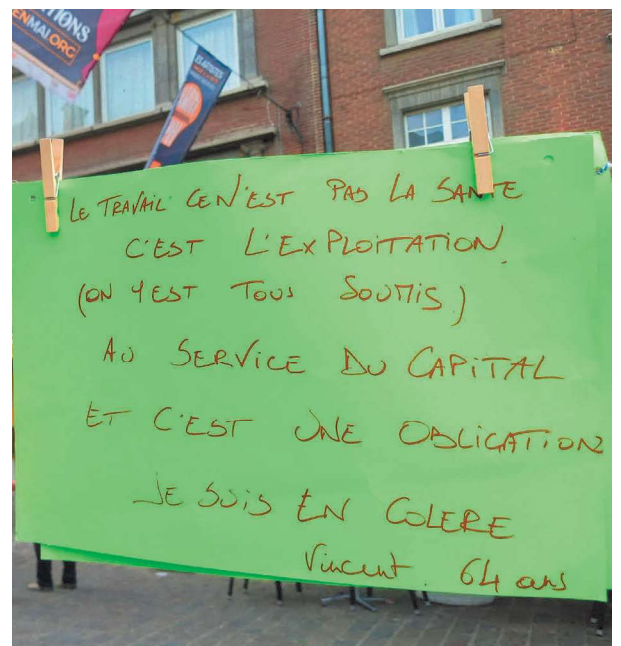 TIONS
ENMAI.ORG
LE TRAVAIL CE N'EST PAS LA SANTE
C'EST L'EXPLOITATION.
(ON Y EST TOUS SOUMIS.)
AU SERVICE DU CAPITAL
ET C'EST UNE OBLIGATION
JE SUIS EN COLERE
Vincent. 64 ans